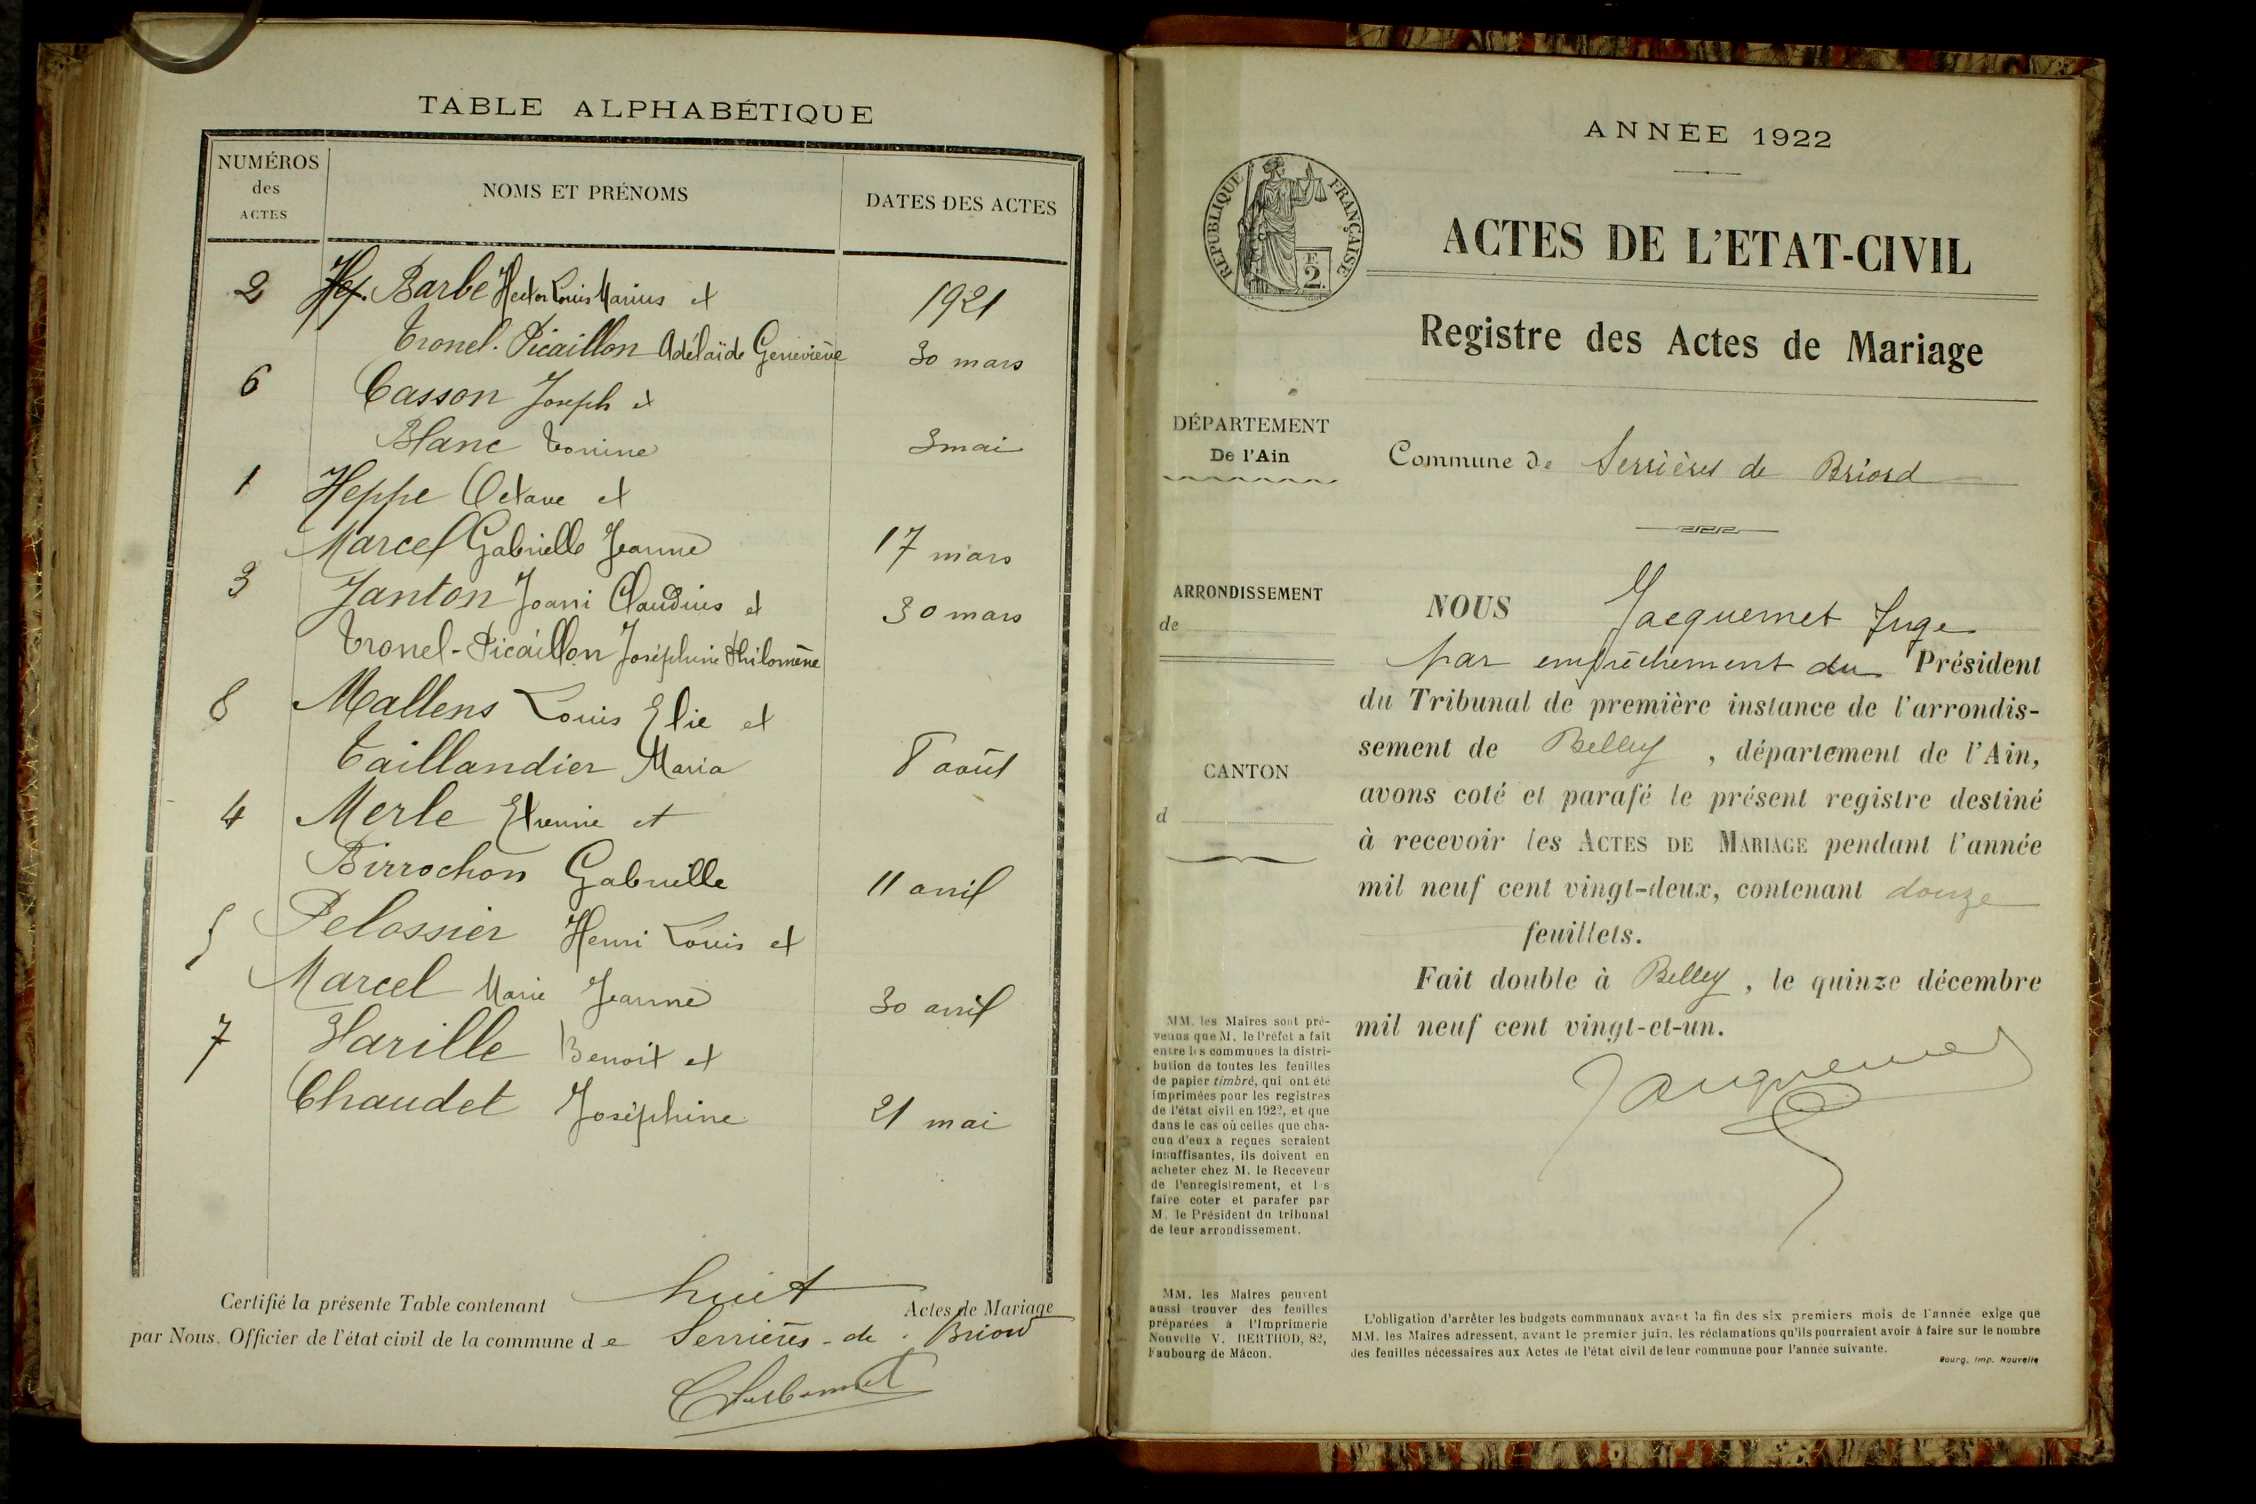 TABLE ALPHABÉTIQUE
NUMÉROS
des
ACTES
NOMS ET PRÉNOMS
DATES DES ACTES
2 Barbe Hector Louis Marius et 1921
Tronel-Picaillon Adélaïde Geneviève 30 mars
6 Casson Joseph et
Blanc Tonine 3 mai
1 Heppe Octave et
Marcel Gabrielle Jeanne 17 mars
3 Janton Joani Claudius et 30 mars
Tronel-Picaillon Joséphine Philomène
8 Mallens Louis Elie et
Taillandier Maria 8 août
4 Merle Etienne et
Birrochon Gabrielle 11 avril
5 Pelossier Henri Louis et
Marcel Marie Jeanne 30 avril
7 Harille Benoit et
Chaudet Joséphine 21 mai
Certifié la présente Table contenant huit Actes de Mariage
par Nous, Officier de l'état civil de la commune de Serrières-de-Briord
ANNÉE 1922
RÉPUBLIQUE FRANÇAISE
F.
2.
ACTES DE L'ETAT-CIVIL
Registre des Actes de Mariage
DÉPARTEMENT
De l'Ain
Commune de Serrières de Briord
ARRONDISSEMENT
de
CANTON
d
NOUS Jacquemet Juge
par empêchement du Président
du Tribunal de première instance de l'arrondis-
sement de Belley, département de l'Ain,
avons coté et parafé le présent registre destiné
à recevoir les ACTES DE MARIAGE pendant l'année
mil neuf cent vingt-deux, contenant douze
feuillets.
Fait double à Belley, le quinze décembre
mil neuf cent vingt-et-un.
Jacquemet
MM. les Maires sont pré-
venus que M. le Préfet a fait
entre les communes la distri-
bution de toutes les feuilles
de papier timbré, qui ont été
imprimées pour les registres
de l'état civil en 1922, et que
dans le cas où celles que cha-
cun d'eux a reçues seraient
insuffisantes, ils doivent en
acheter chez M. le Receveur
de l'enregistrement, et les
faire coter et parafer par
M. le Président du tribunal
de leur arrondissement.
MM. les Maires peuvent
aussi trouver des feuilles
préparées à l'Imprimerie
Nouvelle V. BERTHOD, 82,
Faubourg de Mâcon.
L'obligation d'arrêter les budgets communaux avant la fin des six premiers mois de l'année exige que
MM. les Maires adressent, avant le premier juin, les réclamations qu'ils pourraient avoir à faire sur le nombre
des feuilles nécessaires aux Actes de l'état civil de leur commune pour l'année suivante.
Bourg, Imp. Nouvelle